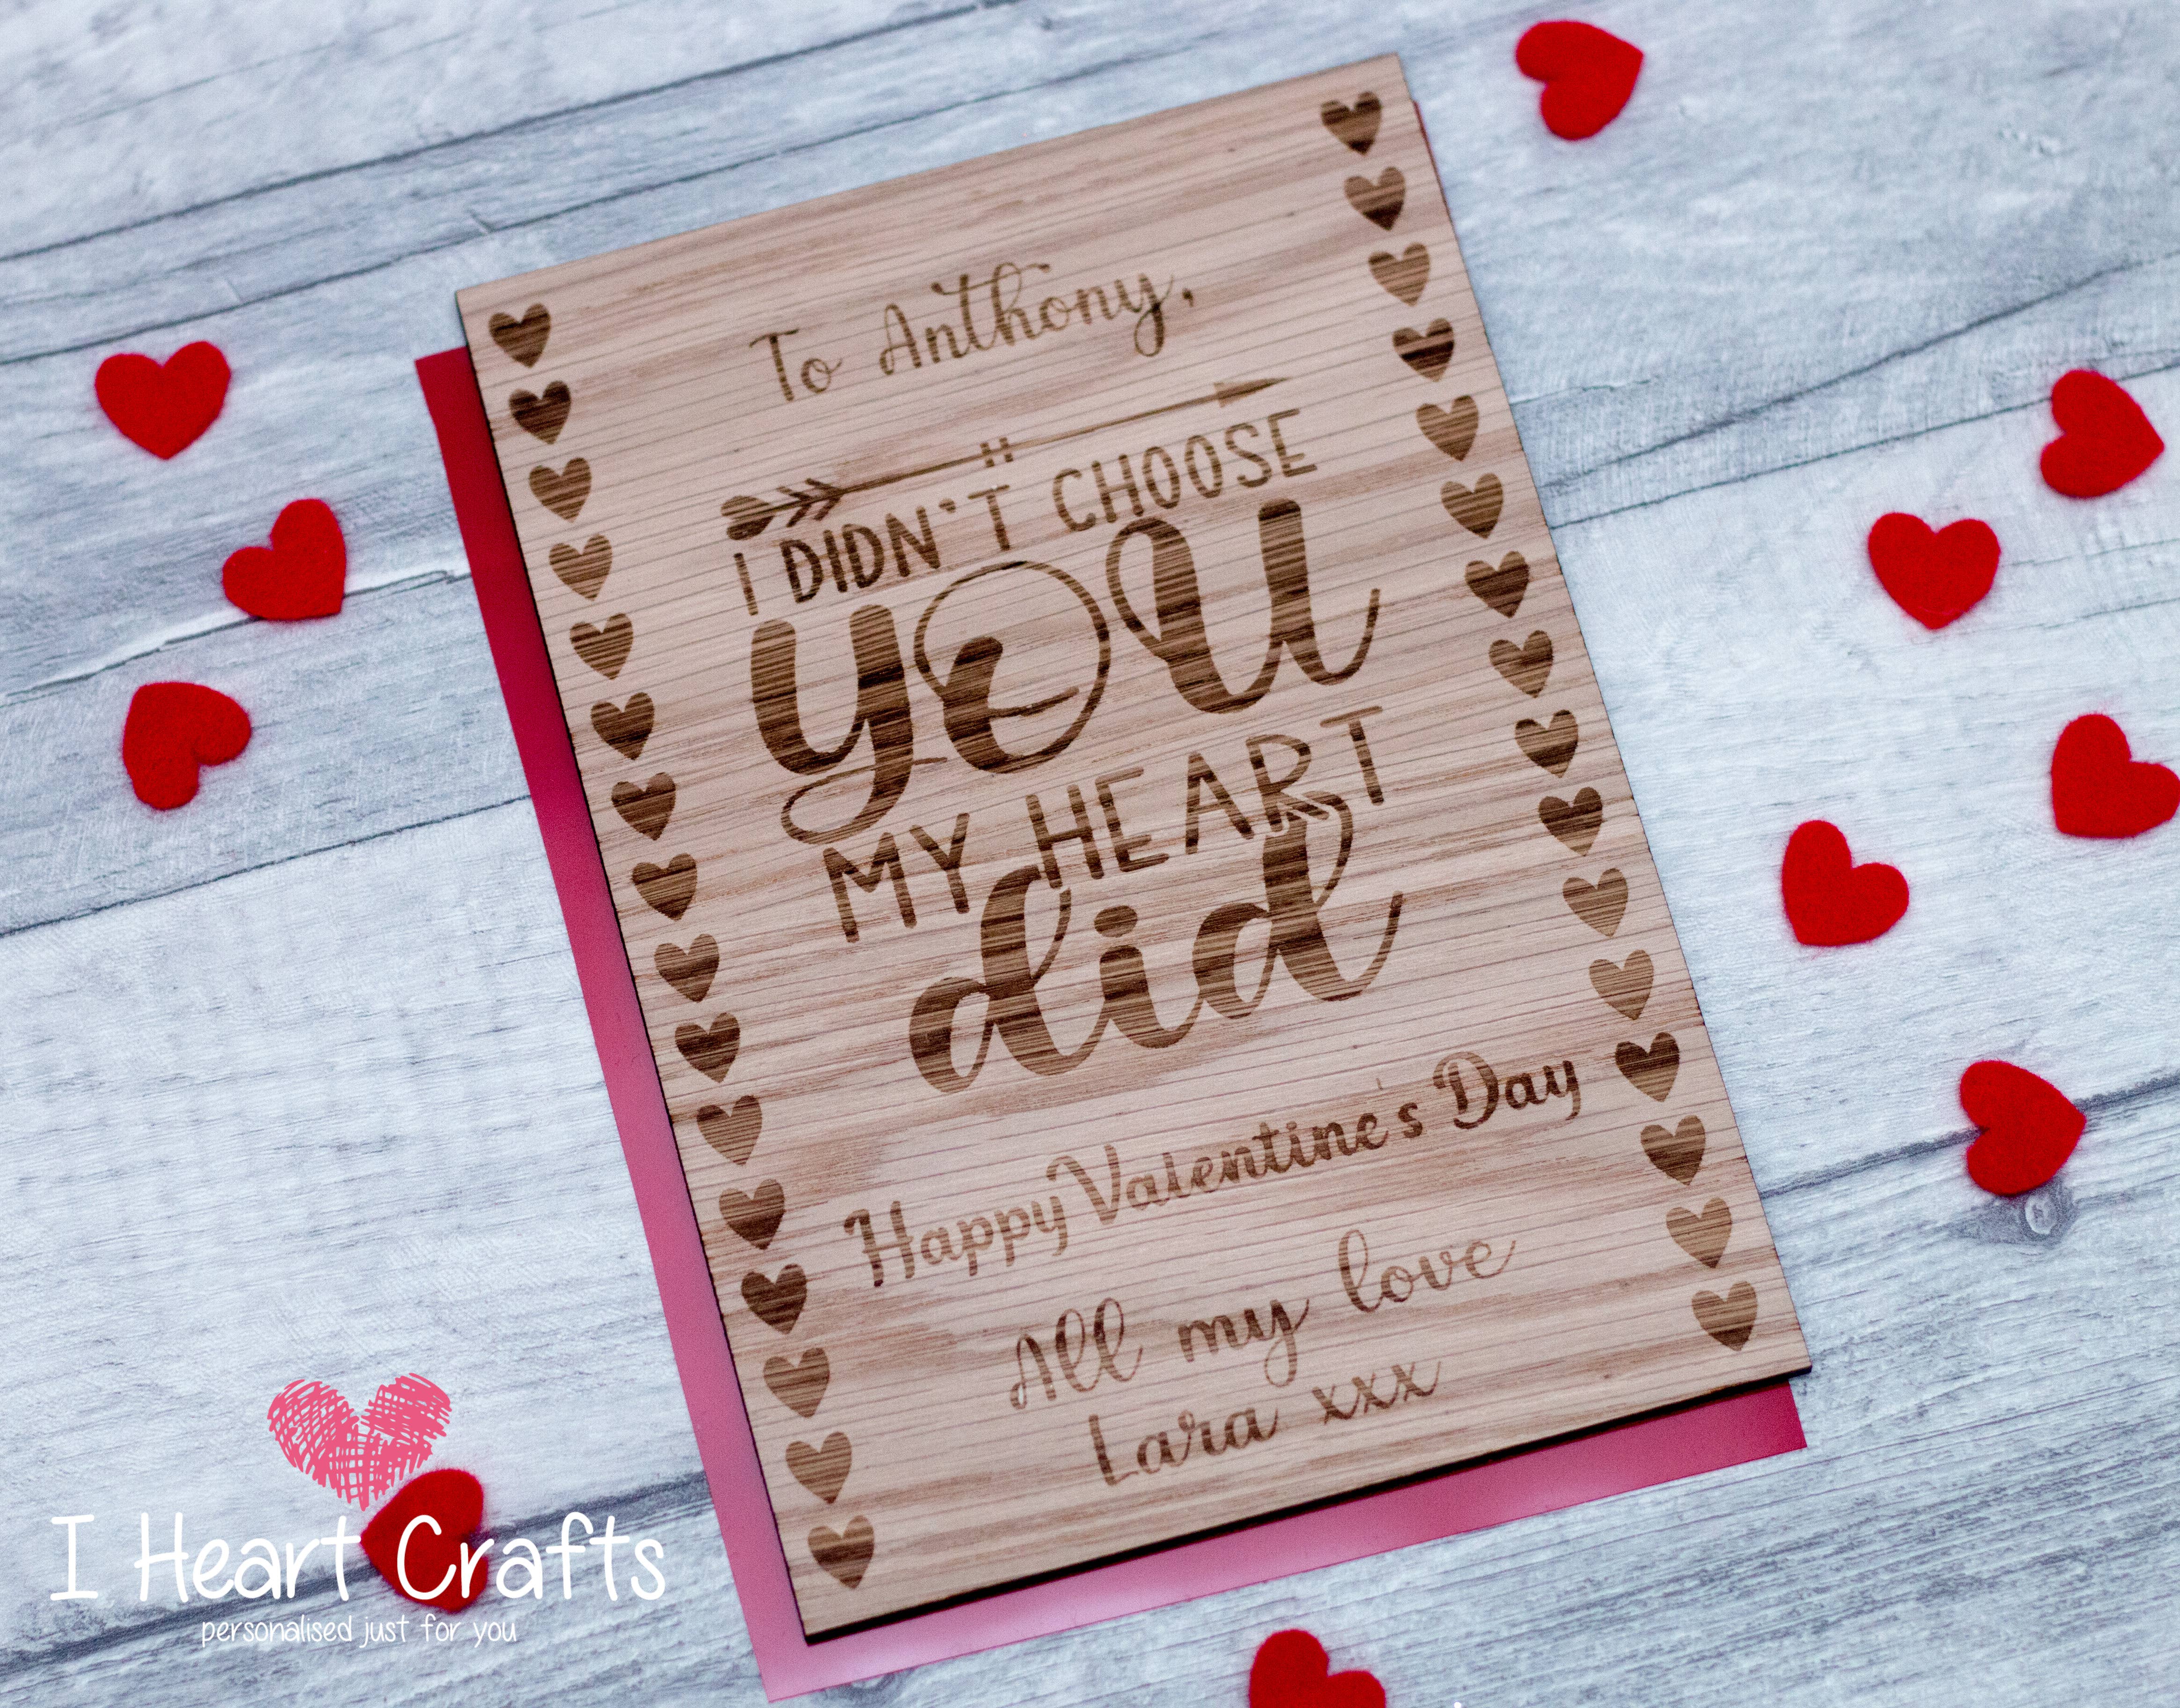 To Anthony,
I DIDN'T CHOOSE
you
MY HEART
did
Happy Valentine's Day
All my love
Lara xxx
I Heart Crafts
personalised just for you